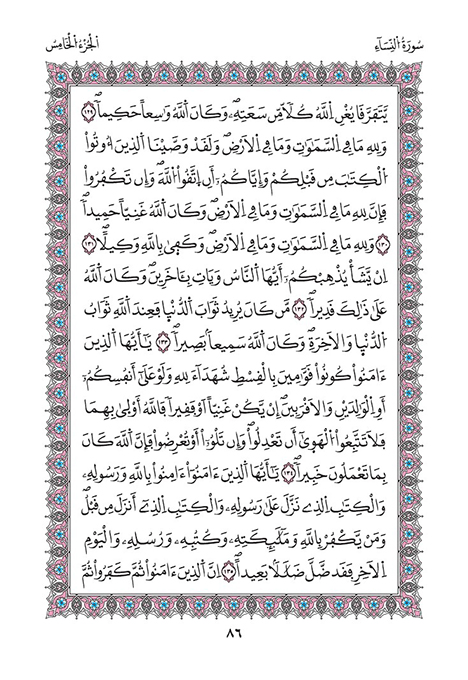 سُورَةُ النِّسَآءِ
الْجُزْءُ الْخَامِسُ
يَّتَفَرَّقَا يُغْنِ اِللَّهُ كُلّاٗ مِّن سَعَتِهِۦۖ وَكَانَ اَللَّهُ وَٰسِعاً حَكِيماٗۖ ١٢٩
وَلِلهِ مَا فِي اِلسَّمَٰوَٰتِ وَمَا فِي اِلَارْضِۖ وَلَقَدْ وَصَّيْنَا اَلذِينَ أُوتُواْ
اُلْكِتَٰبَ مِن قَبْلِكُمْ وَإِيَّاكُمُۥٓ أَنِ اِتَّقُواْ اُللَّهَۖ وَإِن تَكْفُرُواْ
فَإِنَّ لِلهِ مَا فِي اِلسَّمَٰوَٰتِ وَمَا فِي اِلَارْضِۖ وَكَانَ اَللَّهُ غَنِيّاً حَمِيداٗۖ
١٣٠ وَلِلهِ مَا فِي اِلسَّمَٰوَٰتِ وَمَا فِي اِلَارْضِۖ وَكَف۪يٰ بِاللَّهِ وَكِيلاًۖ ١٣١
اِنْ يَّشَأْ يُذْهِبْكُمُۥٓ أَيُّهَا اَلنَّاسُ وَيَاتِ بِـَٔاخَرِينَۖ وَكَانَ اَللَّهُ
عَلَىٰ ذَٰلِكَ قَدِيراٗۖ ١٣٢ مَّن كَانَ يُرِيدُ ثَوَابَ اَلدُّنْي۪ا فَعِندَ اَللَّهِ ثَوَابُ
اُلدُّنْي۪ا وَالَاخِرَةِۖ وَكَانَ اَللَّهُ سَمِيعاَۢ بَصِيراٗۖ ١٣٣ يَٰٓأَيُّهَا اَلذِينَ
ءَامَنُواْ كُونُواْ قَوَّٰمِينَ بِالْقِسْطِ شُهَدَآءَ لِلهِ وَلَوْ عَلَىٰٓ أَنفُسِكُمُۥٓ
أَوِ اِلْوَٰلِدَيْنِ وَالَاقْرَبِينَۖ إِنْ يَّكُنْ غَنِيّاً اَوْ فَقِيراٗ فَاللَّهُ أَوْل۪يٰ بِهِمَا
فَلَا تَتَّبِعُواْ اُلْهَو۪يٰٓ أَن تَعْدِلُواْۖ وَإِن تَلْوُۥٓاْ أَوْ تُعْرِضُواْ فَإِنَّ اَللَّهَ كَانَ
بِمَا تَعْمَلُونَ خَبِيراٗۖ ١٣٤ يَٰٓأَيُّهَا اَلذِينَ ءَامَنُوٓاْ ءَامِنُواْ بِاللَّهِ وَرَسُولِهِۦ
وَالْكِتَٰبِ اِلذِے نَزَّلَ عَلَىٰ رَسُولِهِۦ وَالْكِتَٰبِ اِلذِےٓ أَنزَلَ مِن قَبْلُۖ
وَمَنْ يَّكْفُرْ بِاللَّهِ وَمَلَٰٓئِكَتِهِۦ وَكُتُبِهِۦ وَرُسُلِهِۦ وَالْيَوْمِ
اِلَاخِرِ فَقَد ضَّلَّ ضَلَٰلاَۢ بَعِيداًۖ ١٣٥ اِنَّ اَلذِينَ ءَامَنُواْ ثُمَّ كَفَرُواْ ثُمَّ
٨٦